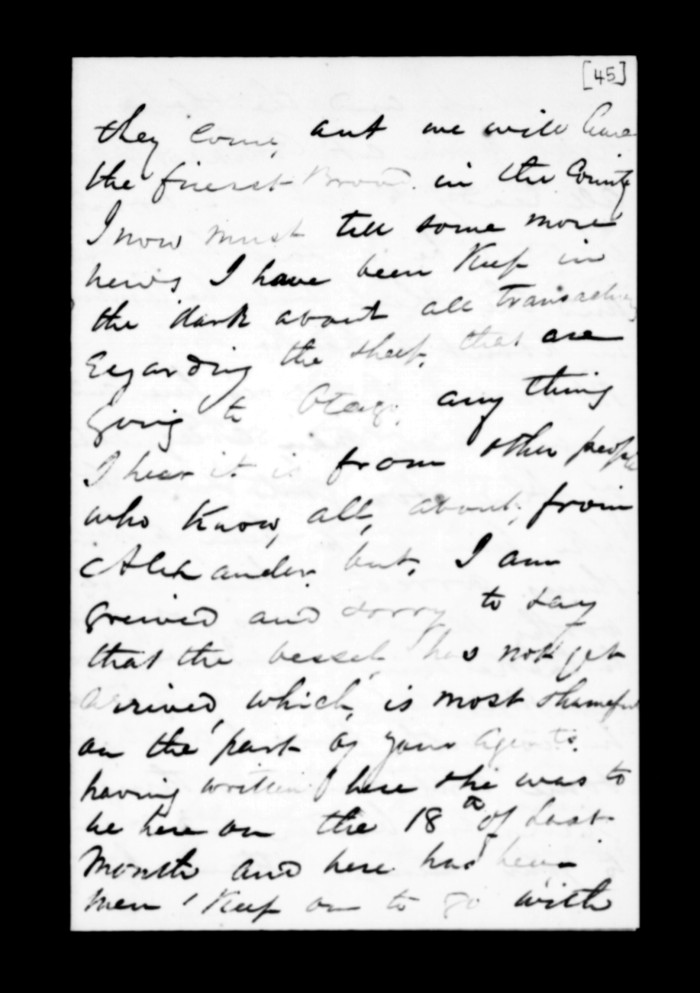 [45]
they come, and we will have
the finest Brow. in the County
I now must tell some more
news I have been Keep in
the dark about all transactions
Regarding the sheep, that are
going to Otago, any thing
I hear it is from other people
who Know, all, about, from
Alexander, but, I am
greived and sorry to say
that the vessel, has not yet
arrived, which, is most shameful
on the part of your agents.
having written here she was to
be here on the 18th of Last
Month and here has been
men Keep on to go with